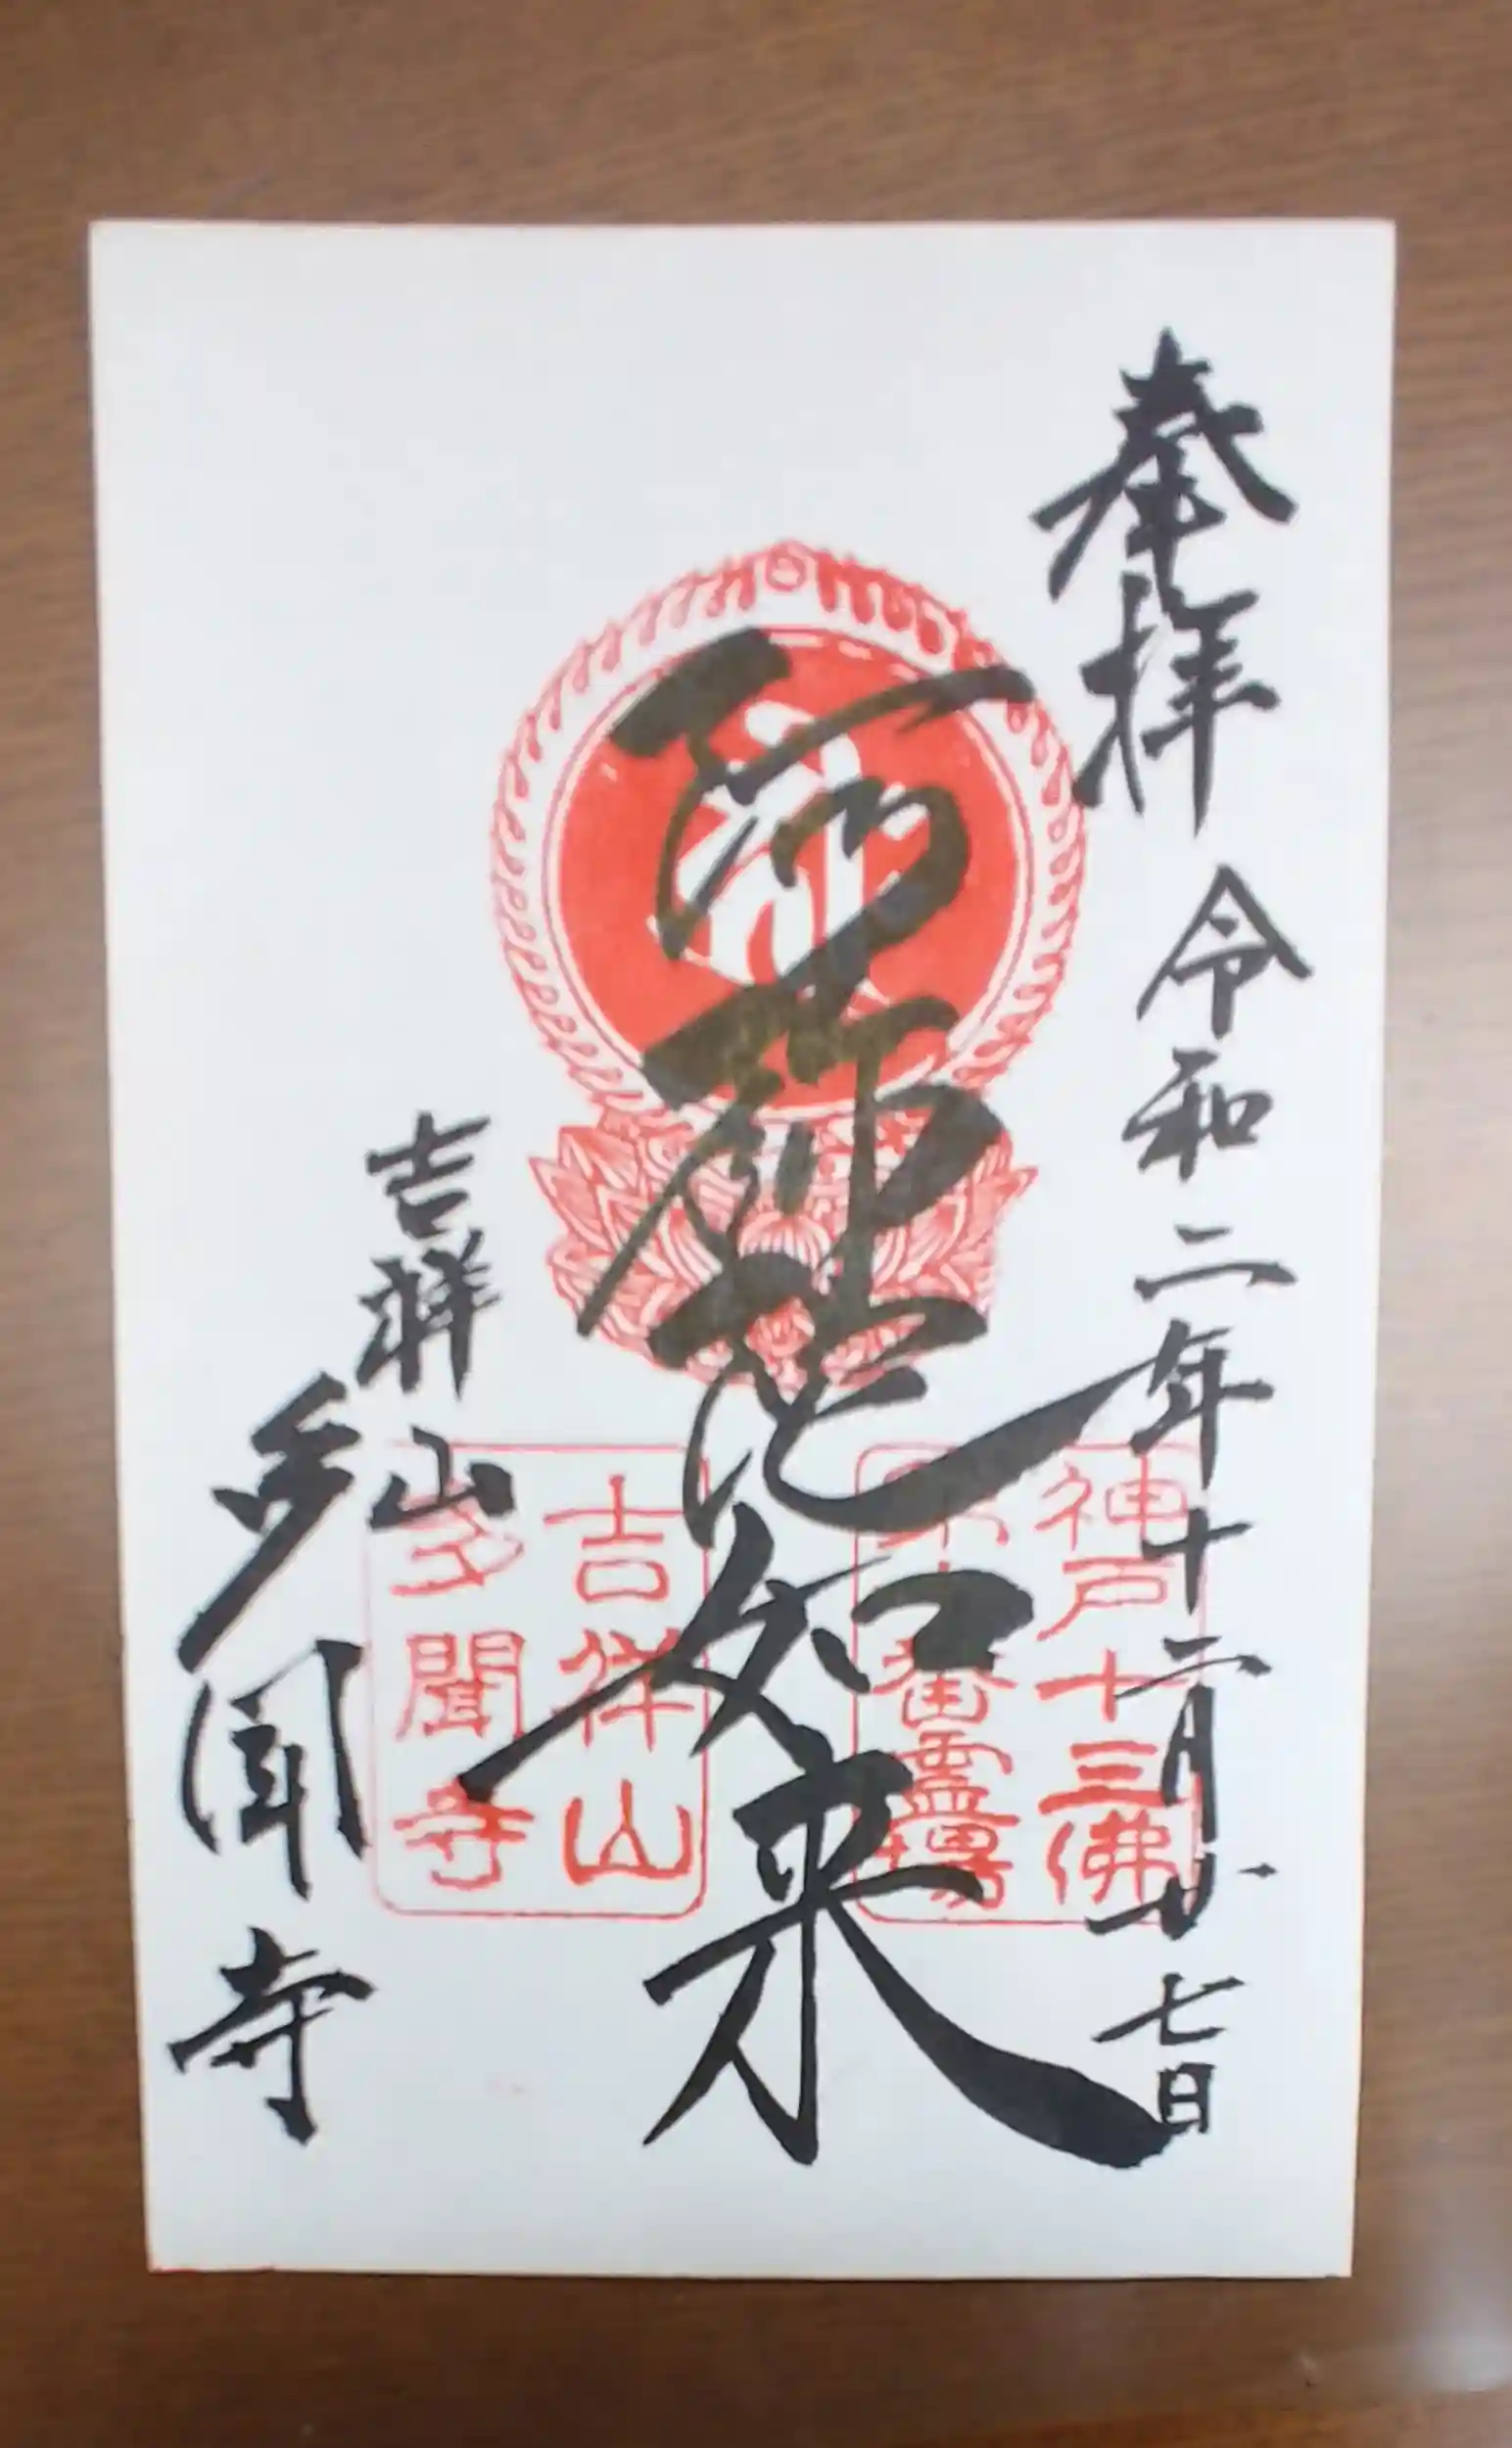 奉拝 令和二年十二月廿七日
神戸十三佛
番霊場
阿弥陀如来
吉祥山
多聞寺
吉祥山
多聞寺